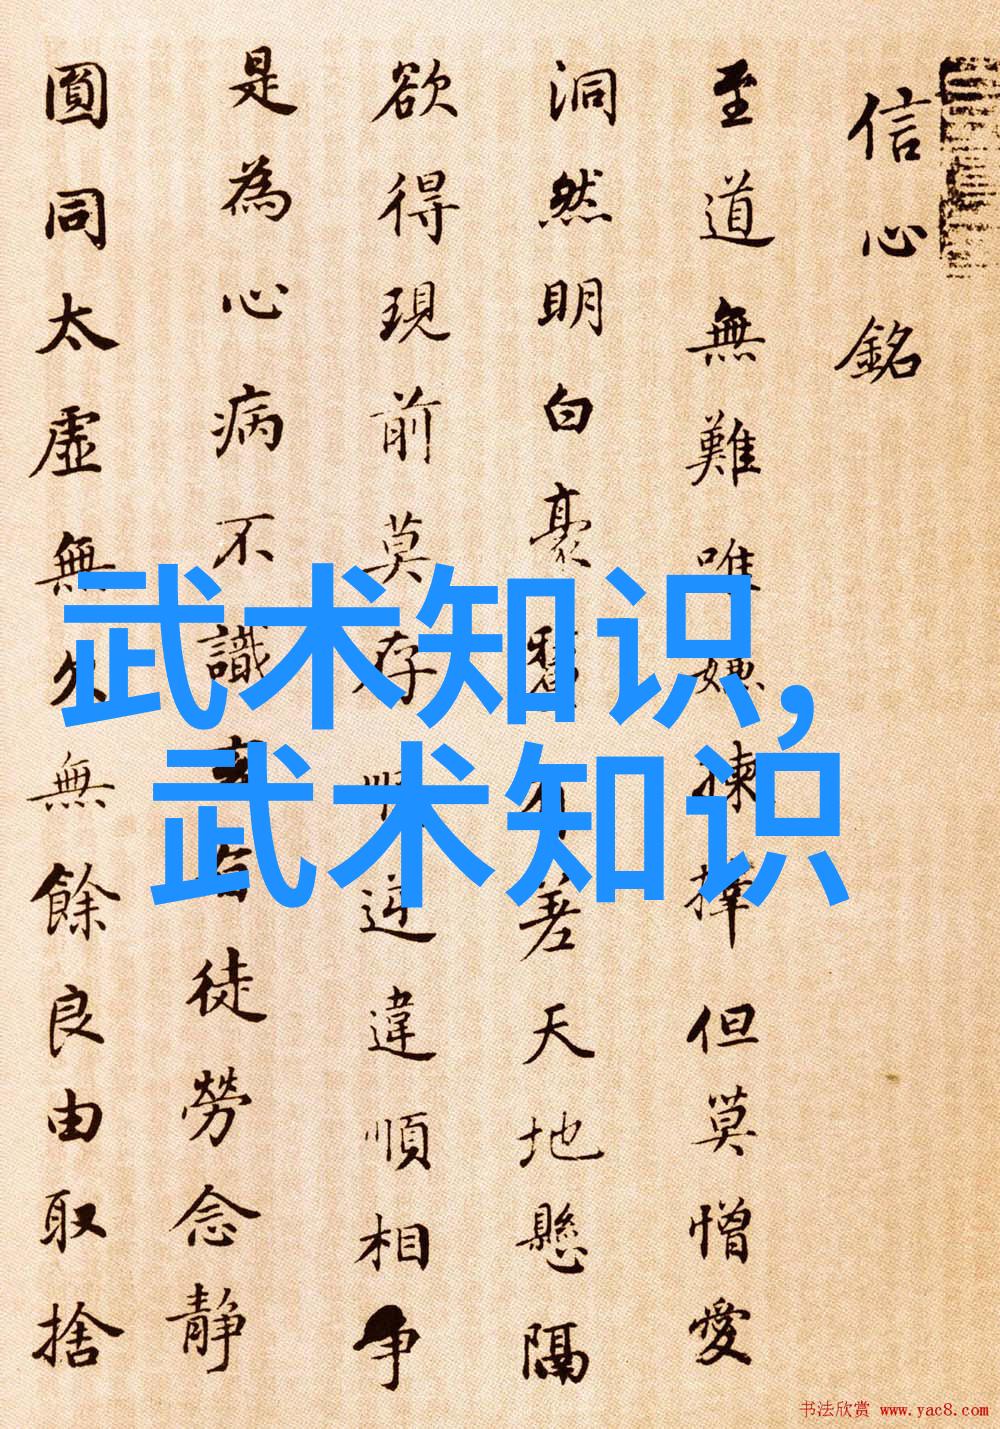 信心銘
至道無難唯嫌揀擇但莫憎愛
洞然明白豪有差天地懸隔
欲得現前莫存順逆違順相争
是為心病不識玄旨徒勞念静
圓同太虛無欠無餘良由取捨
武术知识,
武术知识
书法欣赏 www.yac8.com